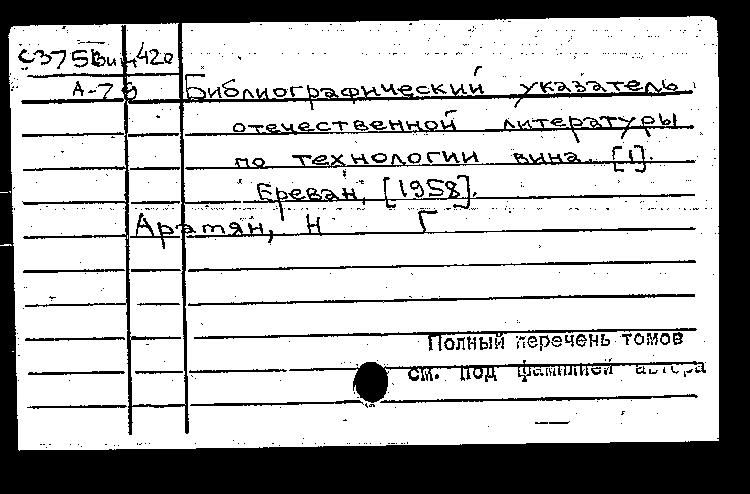 С375Вин420
А-79 Библиографический указатель
отечественной литературы
по технологии вина. [1].
Ереван, [1958].
Аратян, Н Г
Полный перечень томов
см. под фамилией автора